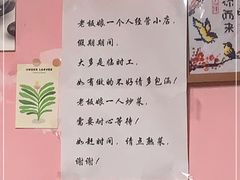 老板娘一个人经营小店，
假期期间，
大多是临时工，
如有做的不好请多包涵！
老板娘一人炒菜，
需要耐心等待！
如赶时间，请点熟菜，
谢谢！
你而来